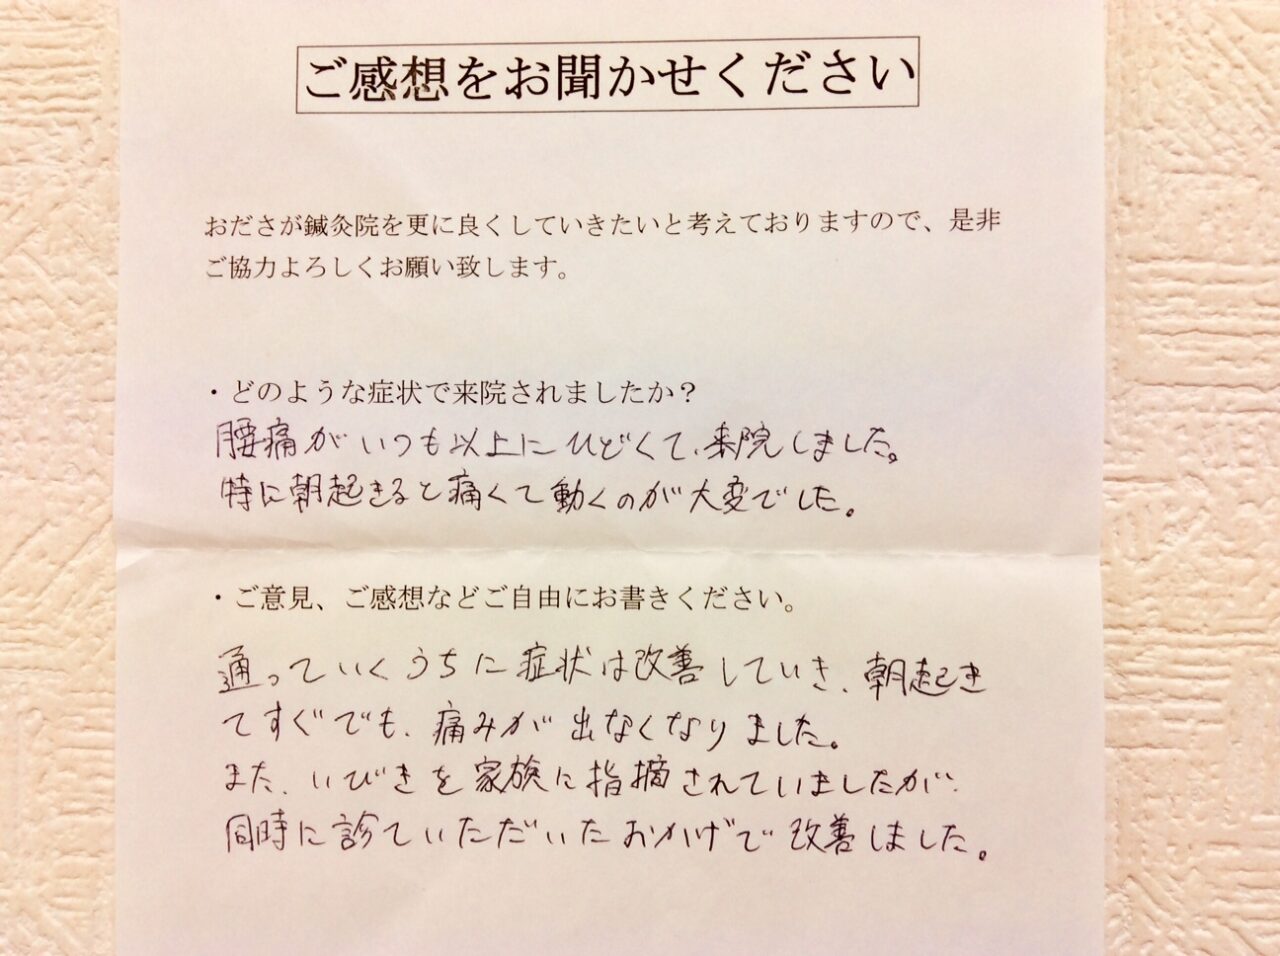 ご感想をお聞かせください
おださが鍼灸院を更に良くしていきたいと考えておりますので、是非
ご協力よろしくお願い致します。
・どのような症状で来院されましたか？
腰痛がいつも以上にひどくて、来院しました。
特に朝起きると痛くて動くのが大変でした。
・ご意見、ご感想などご自由にお書きください。
通っていくうちに症状は改善していき、朝起き
てすぐでも、痛みが出なくなりました。
また、いびきを家族に指摘されていましたが、
同時に診ていただいたおかげで改善しました。